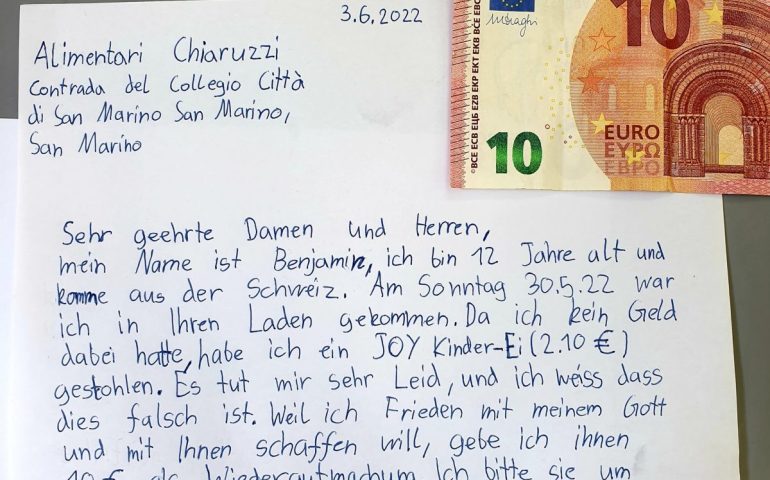 3.6.2022
Alimentari Chiaruzzi
Contrada del Collegio Città
di San Marino San Marino,
San Marino
Sehr geehrte Damen und Herren,
mein Name ist Benjamin, ich bin 12 Jahre alt und
komme aus der Schweiz. Am Sonntag 30.5.22 war
ich in Ihren Laden gekommen. Da ich kein Geld
dabei hatte, habe ich ein JOY Kinder-Ei (2.10 €)
gestohlen. Es tut mir sehr Leid, und ich weiss dass
dies falsch ist. Weil ich Frieden mit meinem Gott
und mit Ihnen schaffen will, gebe ich ihnen
10 € als Wiedergutmachung. Ich bitte sie um
10
10
EURO
ΕΥΡΩ
ЕВРО
©BCE ECB ЕЦБ EZB EKP EKT EKB BCE EBC